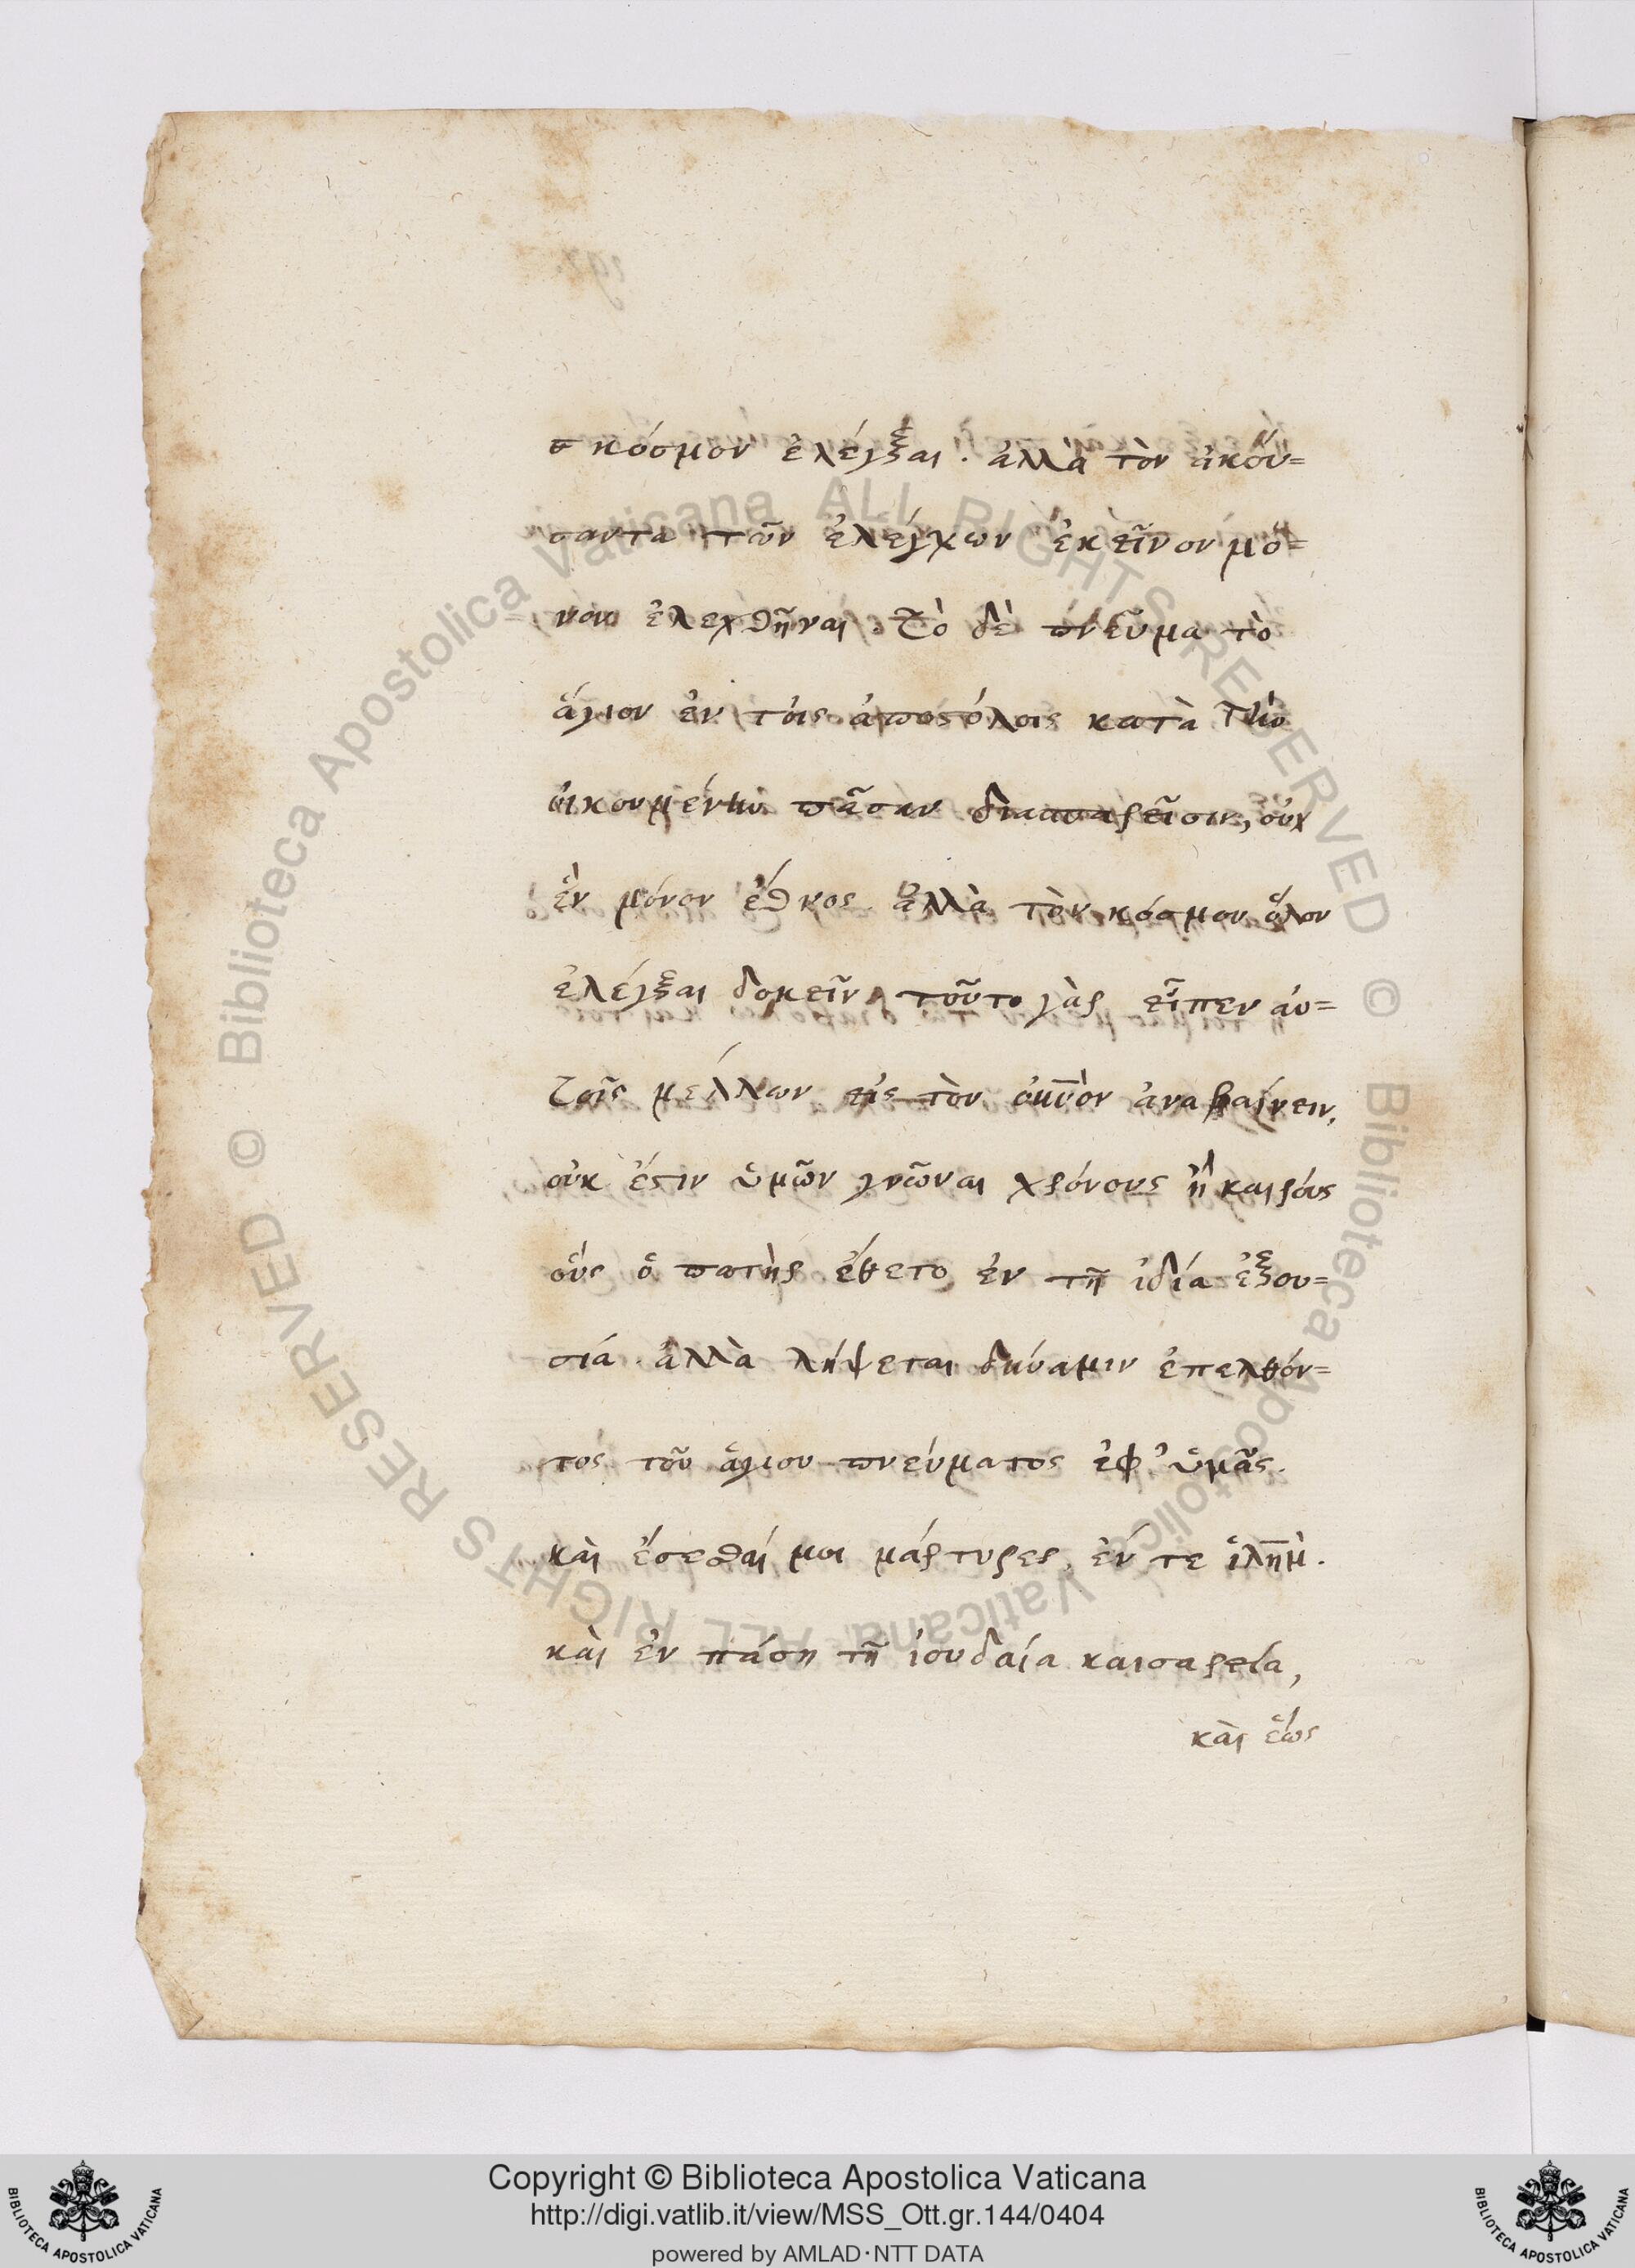 σ κόσμον ἐλέγξαι. ἀλλὰ τὸν ἀκού=
σαντα τῶν ἐλέγχων ἐκεῖνον μό=
νον ἐλεχθῆναι. Τὸ δὲ πνεῦμα τὸ
ἅγιον ἐν τοῖς ἀποστόλοις κατὰ τὴν
οἰκουμένην πᾶσαν διασπαρεῖσιν, οὐχ
ἓν μόνον ἔθνος ἀλλὰ τὸν κόσμον ὅλον
ἐλέγξαι δοκεῖν, τοῦτο γὰρ εἶπεν αὐ=
τοῖς μέλλων εἰς τὸν οὐνὸν ἀναβαίνειν,
οὐκ ἔστιν ὑμῶν γνῶναι χρόνους ἢ καιροὺς
οὓς ὁ πατὴρ ἔθετο ἐν τῇ ἰδία ἐξου=
σία. ἀλλὰ λήψεται δύναμιν ἐπελθόν=
τος τοῦ ἁγίου πνεύματος ἐφ' ὑμᾶς.
καὶ ἔσεσθαί μοι μάρτυρες, ἔν τε ἱλημ.
καὶ ἐν πάση τῇ ἰουδαία καισαρεία,
καὶ ἕως
Copyright © Biblioteca Apostolica Vaticana
http://digi.vatlib.it/view/MSS_Ott.gr.144/0404
powered by AMLAD·NTT DATA
© Biblioteca Apostolica Vaticana ALL RIGHTS RESERVED
© Biblioteca Apostolica Vaticana ALL RIGHTS RESERVED
BIBLIOTECA APOSTOLICA VATICANA
BIBLIOTECA APOSTOLICA VATICANA